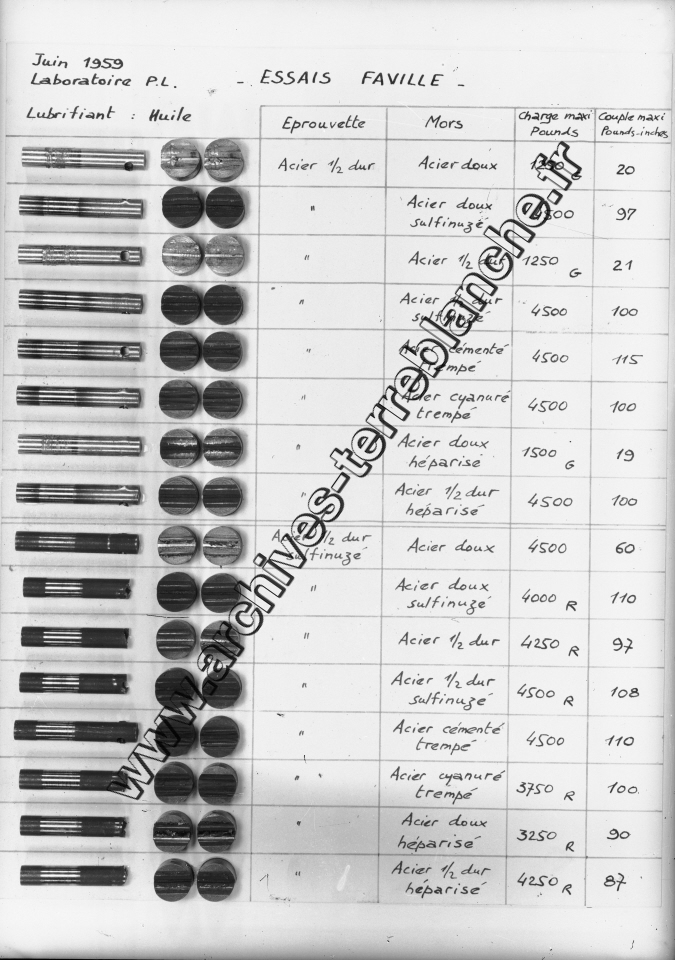 Juin 1959
Laboratoire P.L. - ESSAIS FAVILLE -
Lubrifiant : Huile
Eprouvette Mors Charge maxi Pounds Couple maxi Pounds-inches
Acier 1/2 dur Acier doux 1250 G 20
" Acier doux sulfinuzé 4500 97
" Acier 1/2 dur 1250 G 21
" Acier 1/2 dur sulfinuzé 4500 100
" Acier cémenté trempé 4500 115
" Acier cyanuré trempé 4500 100
" Acier doux héparisé 1500 G 19
" Acier 1/2 dur héparisé 4500 100
Acier 1/2 dur sulfinuzé Acier doux 4500 60
" Acier doux sulfinuzé 4000 R 110
" Acier 1/2 dur 4250 R 97
" Acier 1/2 dur sulfinuzé 4500 R 108
" Acier cémenté trempé 4500 110
" Acier cyanuré trempé 3750 R 100
" Acier doux héparisé 3250 R 90
" Acier 1/2 dur héparisé 4250 R 87
www.archives-terreblanche.fr